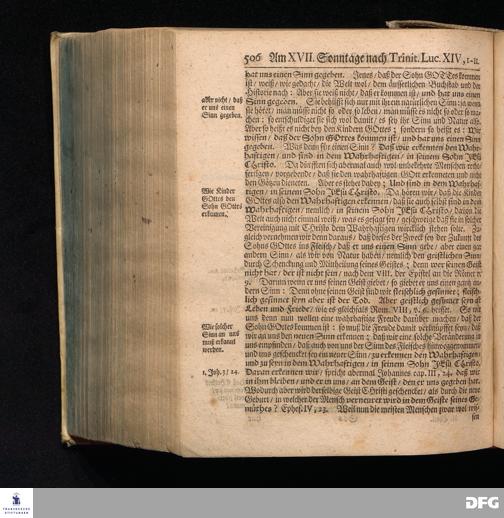 506 Am XVII. Sonntage nach Trinit. Luc. XIV, 1-11.
hat uns einen Sinn gegeben. Jenes / daß der Sohn GOttes kommen
ist / weiß / wie gedacht / die Welt wol / dem äusserlichen Buchstab und der
Historie nach: Aber sie weiß nicht / daß er kommen ist / und hat uns einen
Sinn gegeben. Sie behilfft sich nur mit ihren natürlichen Sinn: ja wenn
sie höret / man müsse nicht so oder so leben / man müsse es nicht so oder so machen
: so entschuldiget sie sich wol damit / es sey ihr Sinn und Natur also.
Aber so heist es nicht bey den Kindern GOttes; sondern so heist es: Wir
wissen / daß der Sohn GOttes kommen ist / und hat uns einen Sinn
gegeben. Was denn für einen Sinn? Daß wir erkennen den Wahrhafftigen
/ und sind in dem Wahrhafftigen / in seinem Sohn JEsu
CHristo. Da dürfften sich abermal auch wol unbekehrte Menschen
vorgebende / daß sie den wahrhafftigen GOtt erkenneten und nicht
den Götzen dieneten. Aber es stehet dabey: Und sind in dem Wahrhafftigen
/ in seinem Sohn JEsu CHristo. Da hören wir / daß die Kinder
GOttes also den Wahrhafftigen erkennen / daß sie auch selbst sind in dem
Wahrhafftigen / nemlich / in seinem Sohn JEsu Christo / davon die
Welt auch nicht einmal weiß / was es gesagt sey / geschweige daß sie in solcher
Vereinigung mit Christo dem Wahrhafftigen würcklich stehen solte. Zugleich
vernehmen wir denn daraus / daß dieses der Zweck sey der Zukunfft des
Sohns GOttes ins Fleisch / daß er uns einen Sinn gebe / aber einen gar
andern Sinn / als wir von Natur haben / nemlich den geistlichen Sinn
durch Schenckung und Mittheilung seines Geistes; denn wer seinen Geist
nicht hat / der ist nicht sein / nach dem VIII. der Epistel an die Römer v.
9. Darum wenn er uns seinen Geist giebet / so giebet er uns einen gantz andern
Sinn: Denn ohne seinen Geist sind wir fleischlich gesinnet; fleischlich
gesinnet seyn aber ist der Tod. Aber geistlich gesinnet seyn ist
Leben und Friede / wie es gleichfals Rom. VIII, v. 6. heisset. So wir
uns denn nun wollen eine wahrhafftige Freude darüber machen / daß der
Sohn GOttes kommen ist: so muß die Freude damit verknüpffet seyn / daß
wir an uns den neuen Sinn erkennen; daß wir eine solche Veränderung in
uns empfinden / daß auch von uns der Sinn des Fleisches hinweggenommen /
und uns geschencket sey ein neuer Sinn / zu erkennen den Wahrhafftigen /
und zu seyn in dem Wahrhafftigen / in seinem Sohn JEsu Christo.
Daran erkennen wir / spricht abermal Johannes cap. III, 24. daß wir
in ihm bleiben / und er in uns / an dem Geist / den er uns gegeben hat.
Wodurch aber wird derselbige Geist Christi geschencket / als durch die neue
Geburt / in welcher der Mensch verneuret wird in dem Geiste seines Gemüthes?
Ephes. IV, 23. Weil nun die meisten Menschen zwar wol wissen
aber nicht / daß
er uns einen
Sinn gegeben.
Wie Kinder
GOttes den
Sohn GOttes
erkennen.
Wie solcher
Sinn an uns
muß erkannt
werden.
1. Joh. 3 / 24.
DFG